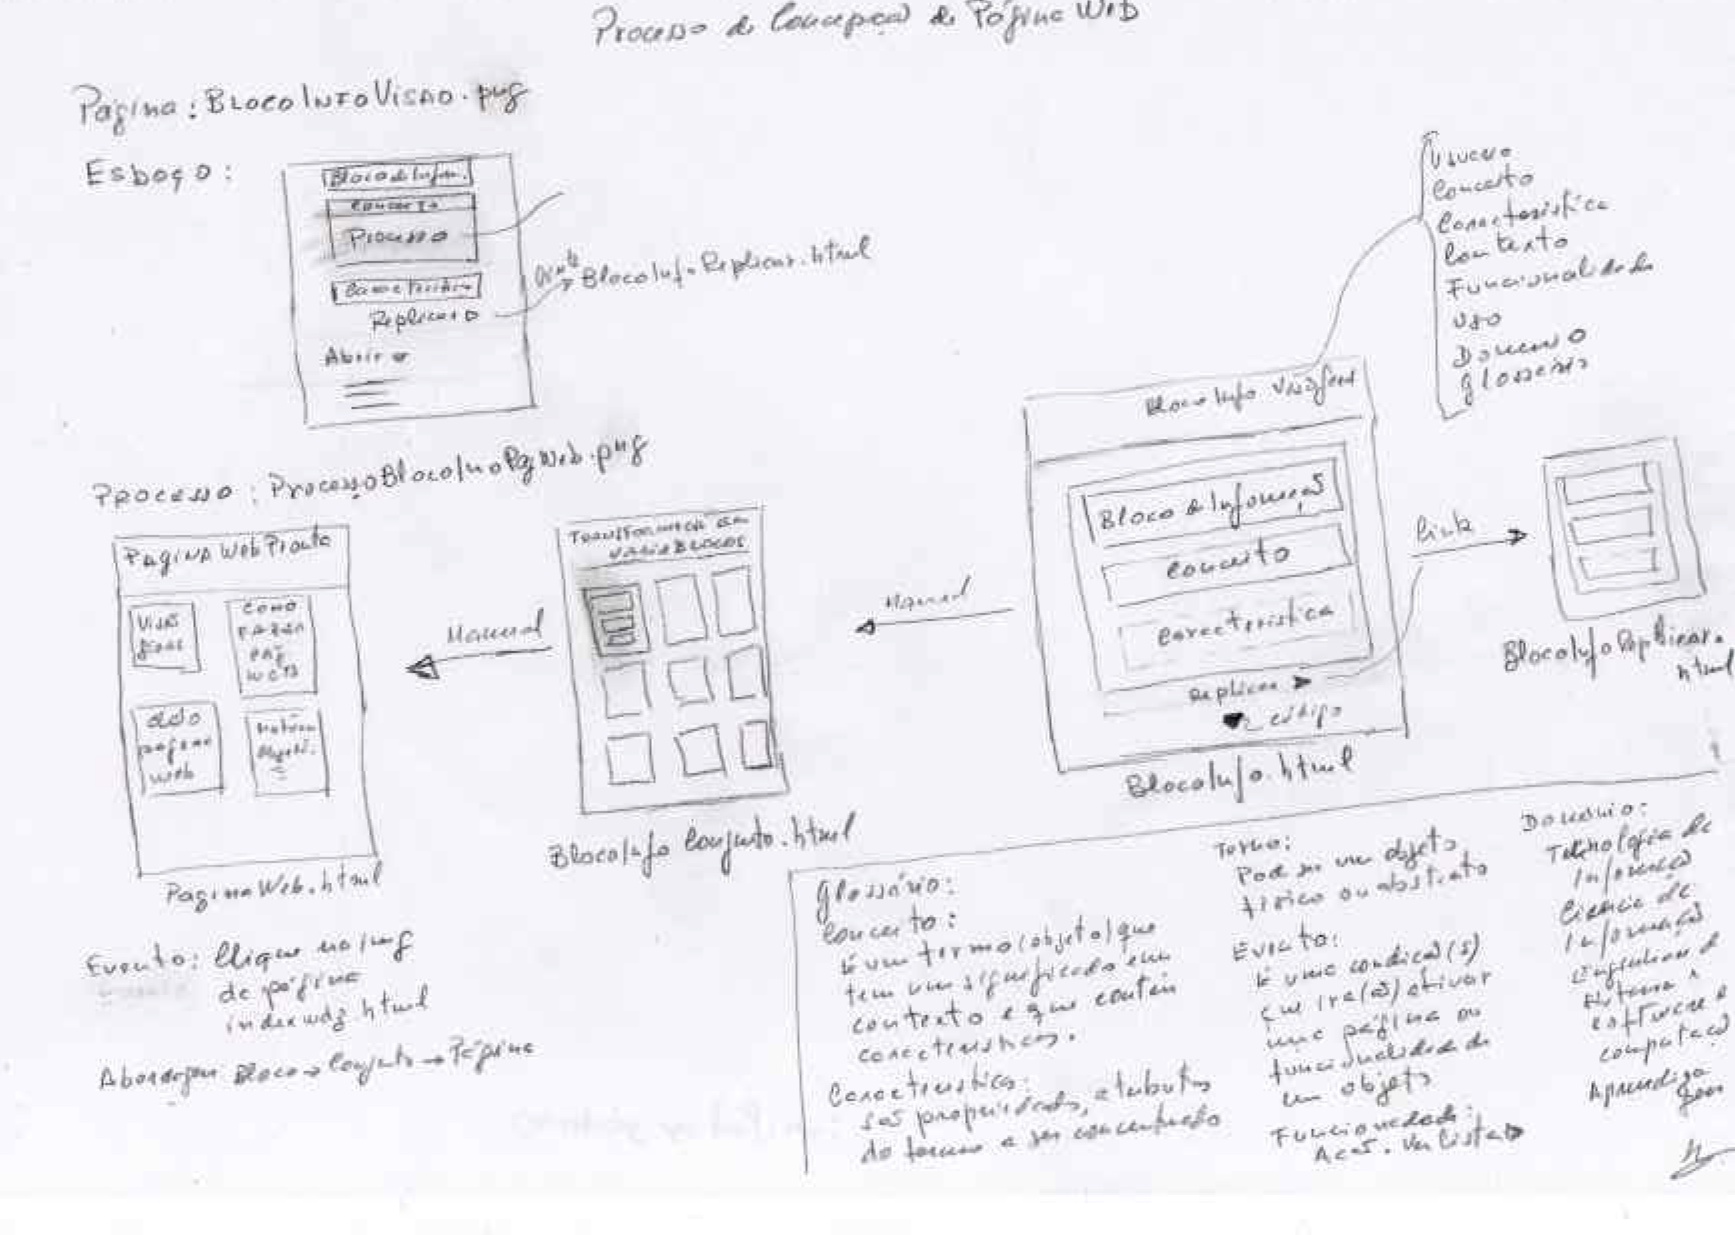 Processo de Concepção de Página Web
Página: BLOCO INFO VISAO.png
Esboço:
Bloco de Infor.
Conceito
Processo
Caracterist
Replicar
Abrir
Link
BlocoInfoReplicar.html
Processo: ProcessoBlocoInfoPgWeb.png
PAGINA Web Pronta
Visão
geral
COMO
FAZER
PAG
WEB
página
web
Manual
Transformação em
vários BLOCOS
Manual
Bloco Info Visão geral
Bloco de Informação
Conceito
Característica
Replicar
código
Link
Conceito
Característica
Contexto
Funcionalidade
Uso
Domínio
glossário
BlocoInfoReplicar.
html
BlocoInfo.html
BlocoInfo Conjunto.html
PaginaWeb.html
Evento: Clique no img
de página
indexwdg.html
Abordagem Bloco → Conjunto → Página
glossário:
Conceito:
É um termo (objeto) que
tem um significado em
contexto e que contém
características.
Característica:
são propriedades, atributos
do termo a ser conceituado
Termo:
Pode ser um objeto
físico ou abstrato
Evento:
É uma condição(s)
que irá(ão) ativar
uma página ou
funcionalidade de
um objeto
Funcionalidade:
Ação. Ver lista
Domínio:
Tecnologia de
Informação
Ciência de
Informação
Engenharia de
software e
computação